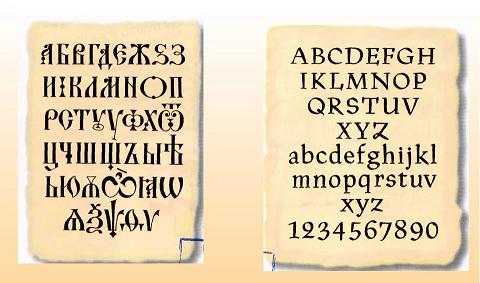 АБВГДЕЖЅЗ
ИІКЛМНОП
РСТУѴФХѾ
ЦЧШЩЪЫѢ
ЬЮѪѼꙖѠ
ѦѮѰѲѴ
ABCDEFGH
IJKLMNOP
QRSTUV
XYZ
abcdefghijkl
mnopqrstuv
xyz
1234567890